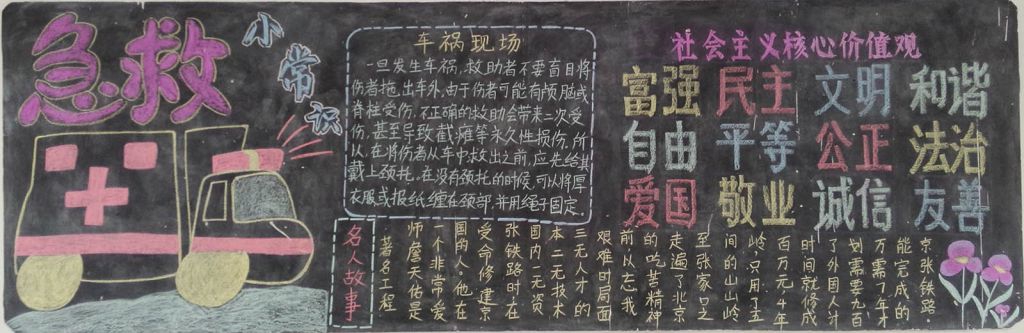 急救
小常识
车祸现场
一旦发生车祸,救助者不要盲目将
伤者拖出车外,由于伤者可能有颅脑或
脊柱受伤,不正确的救助会带来二次受
伤,甚至导致截瘫等永久性损伤,所
以,在将伤者从车中救出之前,应先给其
戴上颈托。在没有颈托的时候,可以将厚
衣服或报纸缠在颈部,并用绳子固定.
社会主义核心价值观
富强 民主 文明 和谐
自由 平等 公正 法治
爱国 敬业 诚信 友善
名人故事
著名工程
师詹天佑是
一个非常爱
国的人.他在
受命修建京
张铁路时在
国内一无资
本二无技术
三无人才的
艰难时局面
前从忘我
的吃苦精神
走遍了北京
至张家口之
间的山山岭
岭,只用了五
百万元4年
时间就修成
了外国人计
划需要九百
万需7年才
能完成的
京张铁路.